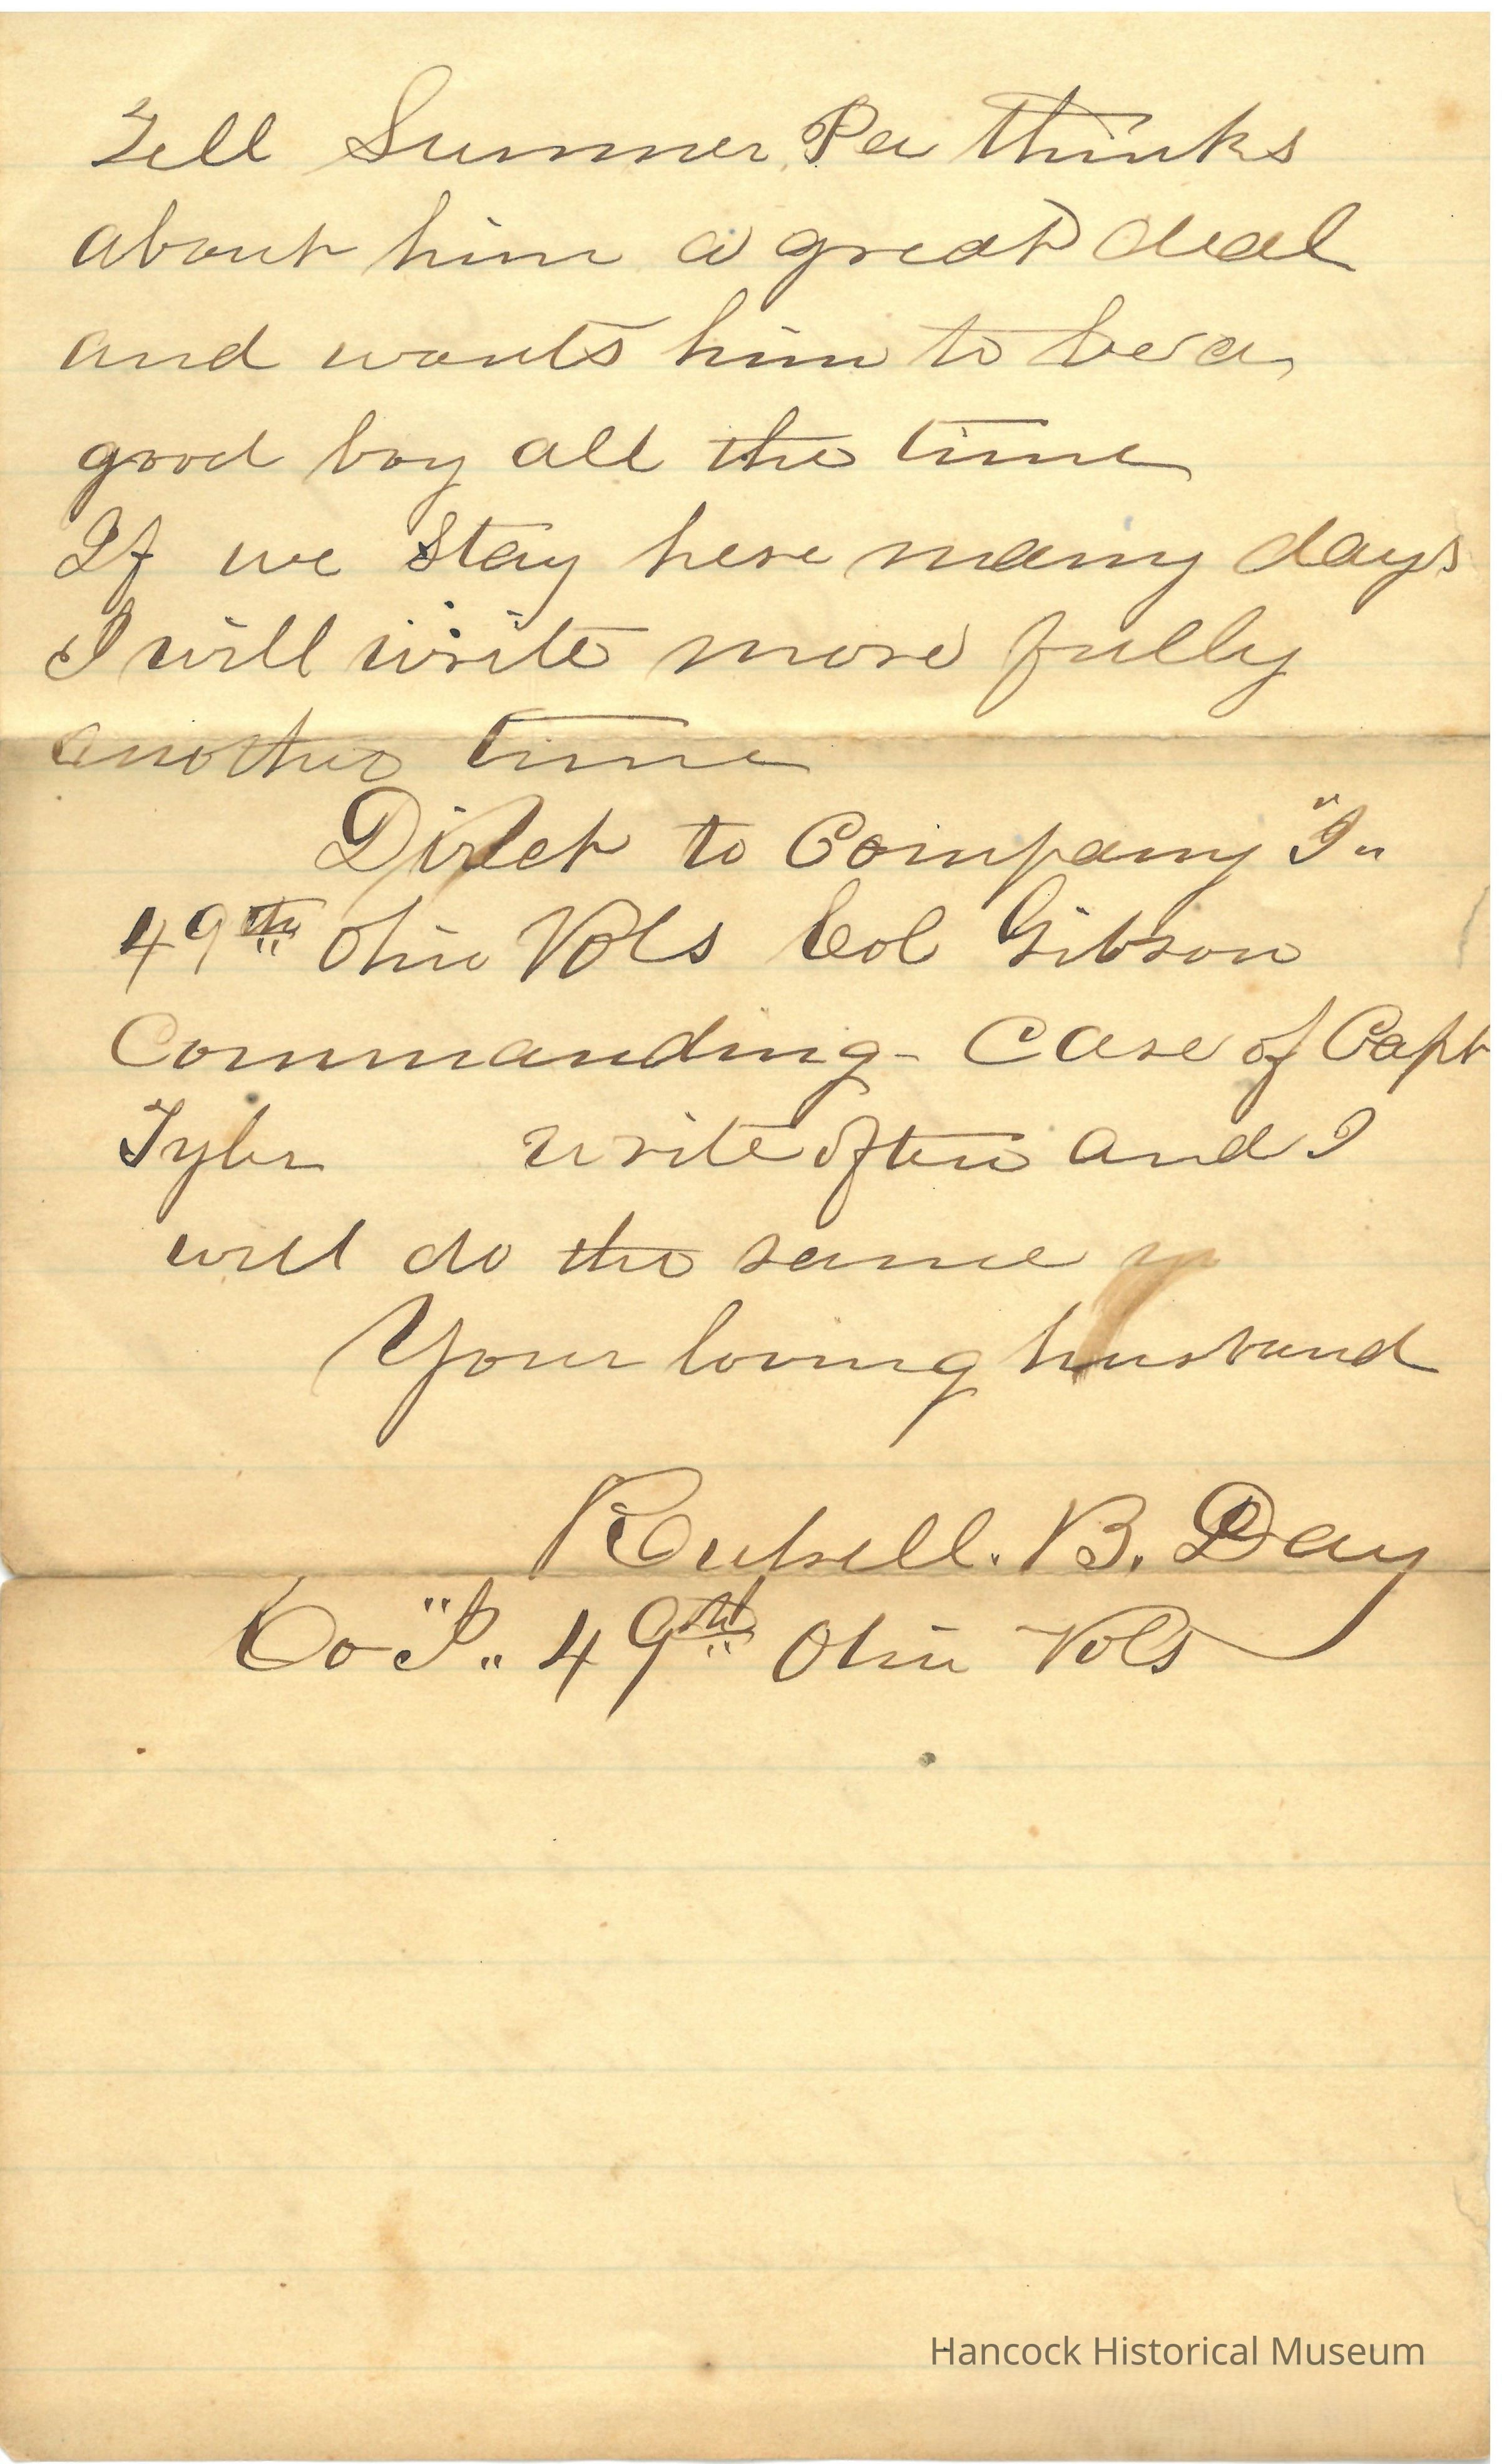 Tell Sumner Pa thinks
about him a great deal
and wants him to be a
good boy all the time
If we stay here many days
I will write more fully
another time
Direct to Company "I"
49th Ohio Vols Col Gibson
Commanding - Care of Capt
Tyler write often and I
will do the same y
Your loving husband
Russell. B. Day
Co "I" 49th Ohio Vols
Hancock Historical Museum